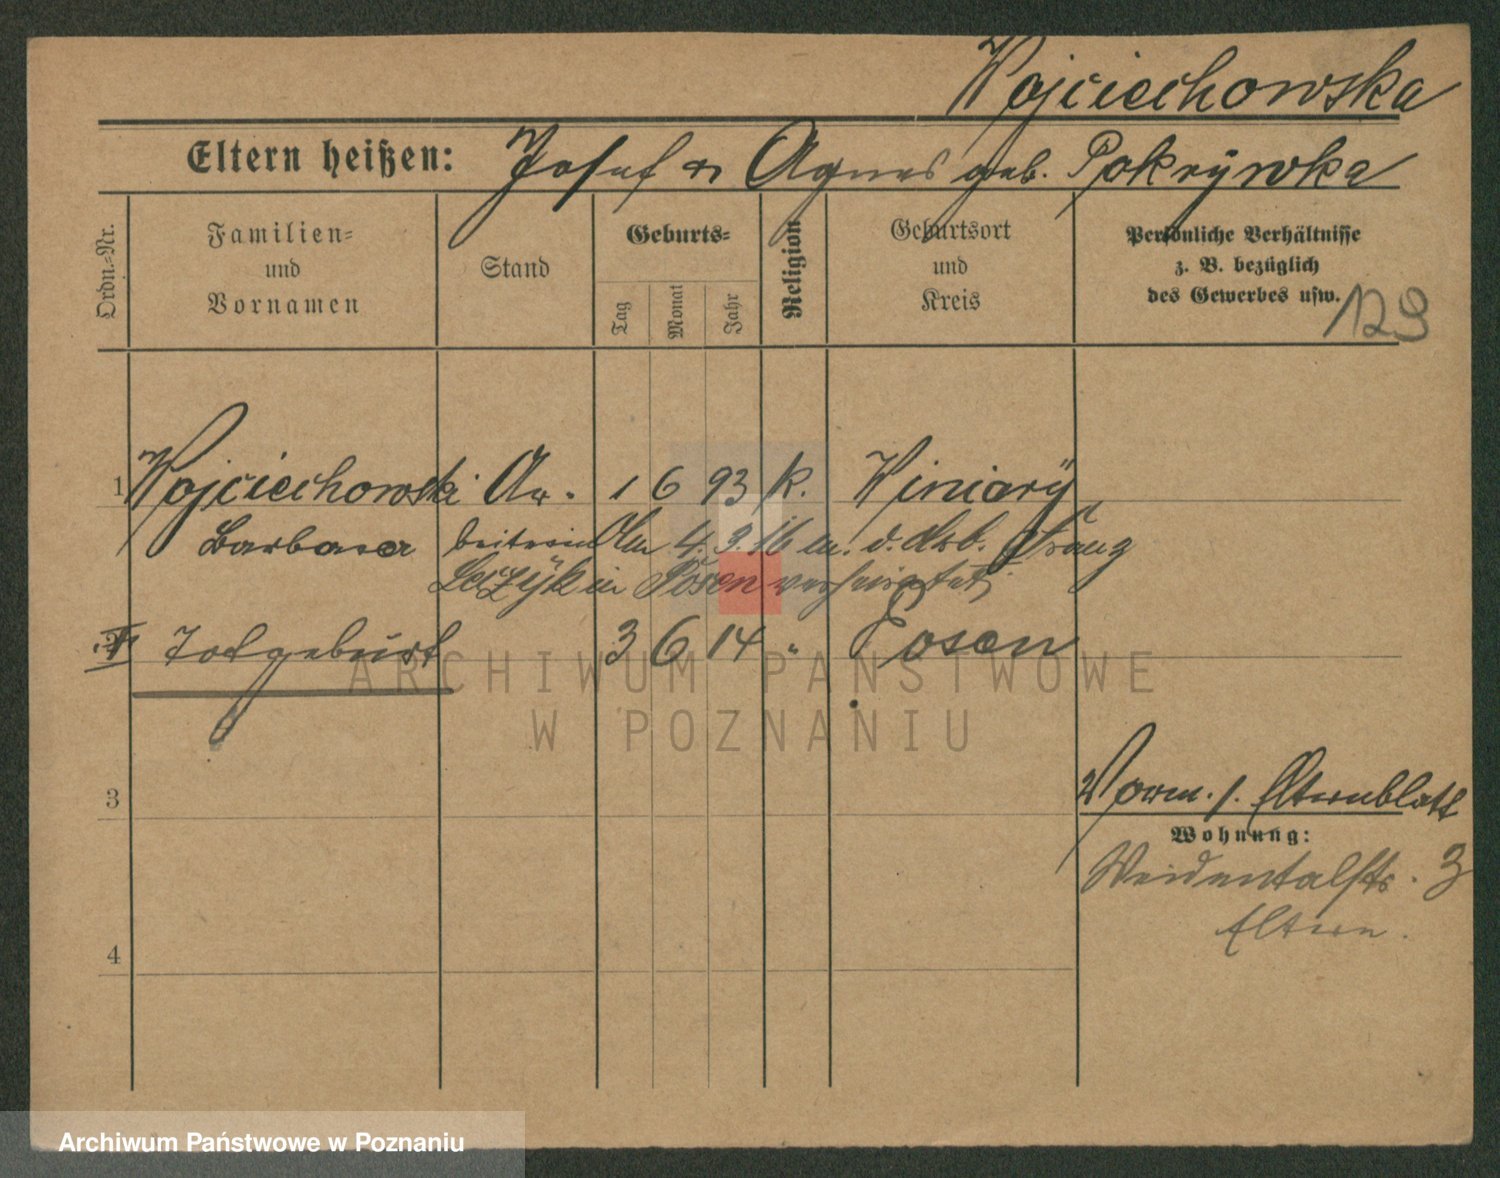 Wojciechowska
Eltern heißen: Josef u. Agnes geb. Pokrywka
Ordn.-Nr.
Familien- und Vornamen
Stand
Geburts-
Tag
Monat
Jahr
Religion
Geburtsort und Kreis
Persönliche Verhältnisse
z. B. bezüglich
des Gewerbes usw.
129
1 Wojciechowski Ar. 1 6 93 k. Winiary
Barbara Am 4. 9. 16 m. d. Arb. Franz
in Posen verheiratet
Totgeburt 3 6 14 " Posen
ARCHIWUM PAŃSTWOWE
W POZNANIU
3
Vorm. s. Elternblatt
Wohnung:
Weidentalstr. 3
Eltern.
4
Archiwum Państwowe w Poznaniu